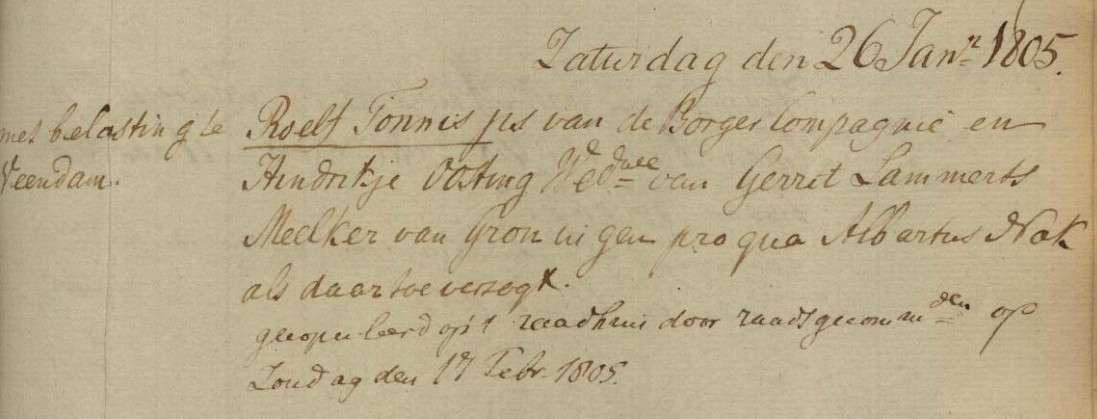 Zaturdag den 26 Janr. 1805.
met belasting te
Veendam.
Roelf Tonnis js van de Borger Compagnie en
Hindrikje Oosting Weduwe van Gerrit Lammerts
Meelker van Groningen pro qua Albartus Nak
als daartoe versogt.
gecopuleerd op 't raadhuis door raadsgecommden op
Zondag den 17 Febr. 1805.